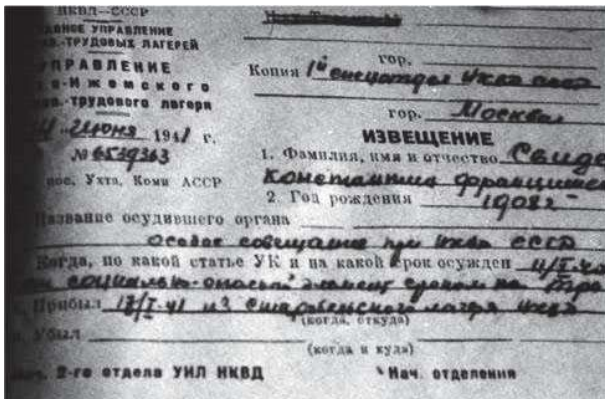 НКВД—СССР
ГЛАВНОЕ УПРАВЛЕНИЕ
ТРУДОВЫХ ЛАГЕРЕЙ
УПРАВЛЕНИЕ
о-Ижемского
трудового лагеря
гор.
Копия 1й спецотдел НКВД СССР
гор. Москва
июня 1941 г.
№ 6539363
пос. Ухта, Коми АССР
ИЗВЕЩЕНИЕ
1. Фамилия, имя и отчество Свиде
Константин
2. Год рождения 1908г
Название осудившего органа
Особое совещание при НКВД СССР
Когда, по какой статье УК и на какой срок осужден
социально-опасный элемент сроком на
Прибыл 13/I-41 из Старобельского лагеря НКВД
(когда, откуда)
Убыл
(когда и куда)
2-го отдела УИЛ НКВД
Нач. отделения